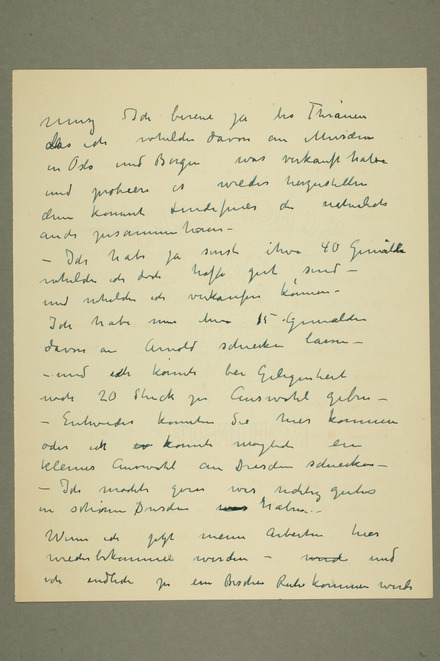 nung Ich bereue ja bis Thränen
das ich davon an Museen
in Oslo und Bergen was verkauft habe
und probiere es wieder herzustellen
denn kommt die naturlich
auch zusammenhören –
– Ich habe ja sonst etwa 40 Gemälde
welche ich doch hoffe gut sind –
und welche ich verkaufen können –
Ich habe nun 15 Gemälden
davon an Arnold schicken lassen –
– und ich könnte bei Gelegenheit
noch 20 Stück zu Auswahl geben –
– Entweder konnten Sie hier kommen
oder ich konnte moglich ein
kleines Auswahl an Dresden schicken –
– Ich mochte gern was richtig gutes
in schönen Dresden haben –
Wenn ich jetzt meine Arbeiten hier
wiederbekommen werden – und
ich endlich zu ein bischen Ruhe kommen werde